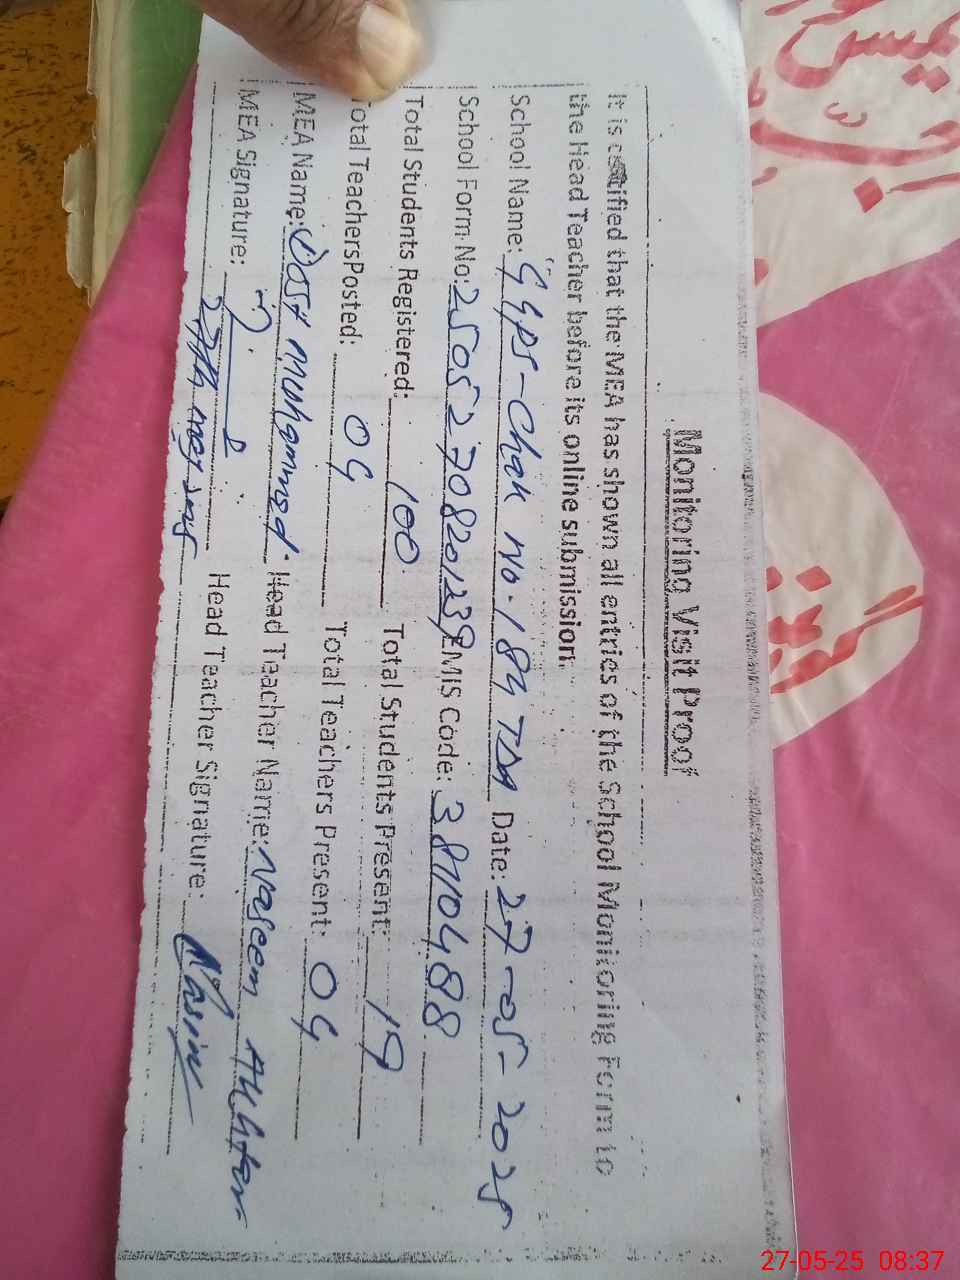 Monitoring Visit Proof
It is certified that the MEA has shown all entries of the School Monitoring Form to
the Head Teacher before its online submission.
School Name: GGPS-Chak No.184 TDA Date: 27-05-2025
School Form No: 2505270820123 EMIS Code: 38110488
Total Students Registered: 100 Total Students Present: 19
Total Teachers Posted: 04 Total Teachers Present: 04
MEA Name: Dost Muhammad. Head Teacher Name: Naseem Akhtar
MEA Signature: Head Teacher Signature:
27-05-25 08:37